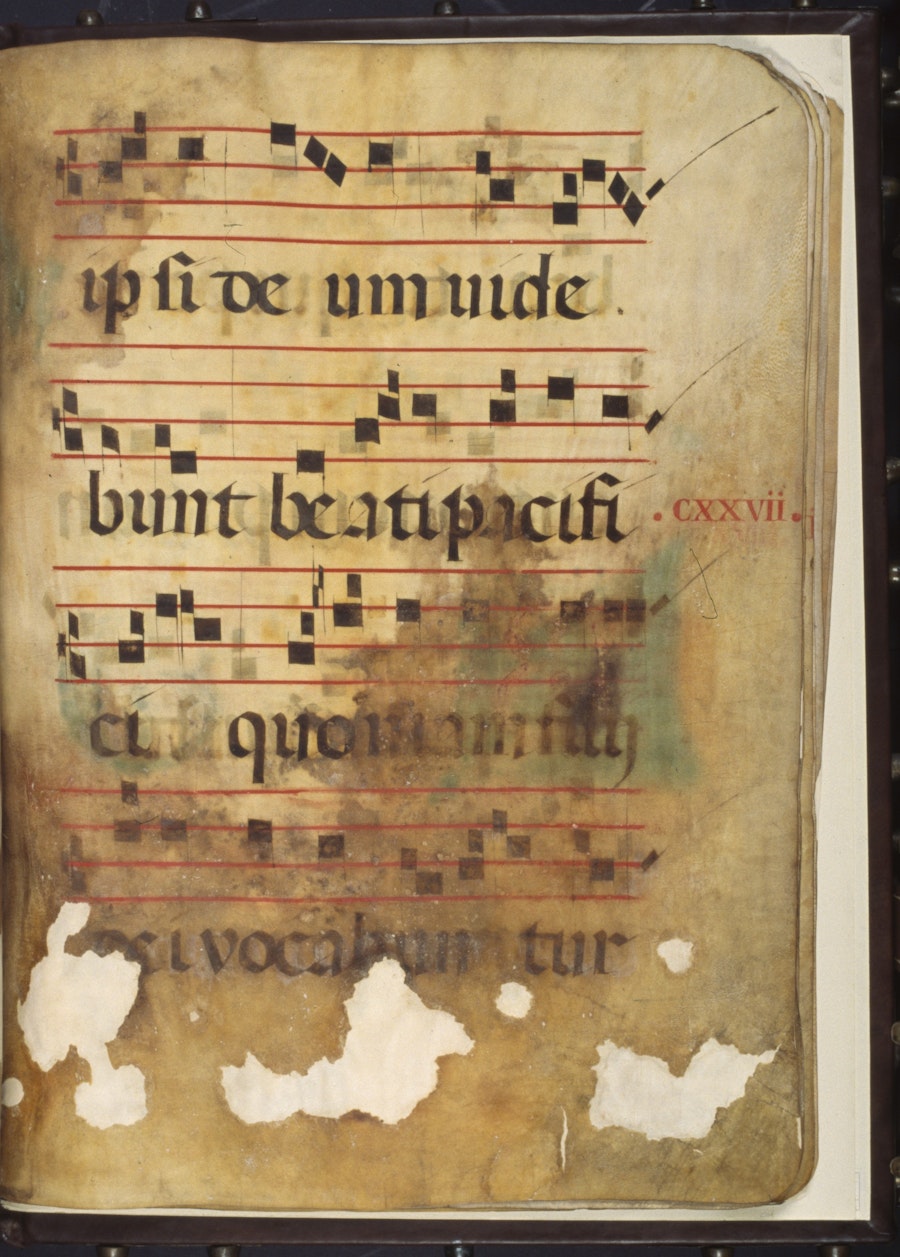 ipsi deum uide.
bunt beati pacifi
.cxxvii.
ci quoniam filij
dei vocabuntur